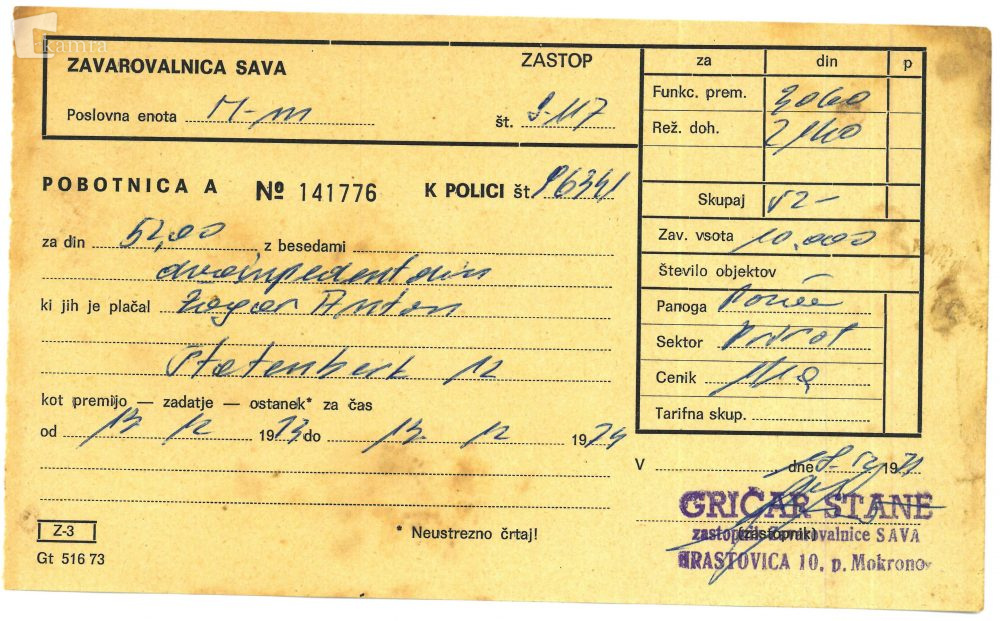 kamra
ZAVAROVALNICA SAVA
ZASTOP
Poslovna enota M-m
št. 9-117
POBOTNICA A № 141776 K POLICI št. 96341
za din 52,00 z besedami
dvainpedeset din
ki jih je plačal Žagar Anton
Štatenberk 12
kot premijo — zadatje — ostanek* za čas
od 13 12 1973 do 13. 12 1974
za din p
Funkc. prem. 3060
Rež. doh. 2140
Skupaj 52-
Zav. vsota 10.000
Število objektov
Panoga Požar
Sektor Privat
Cenik
Tarifna skup.
V dne 197
GRIČAR STANE
(zastopnik)
zastopnik Zavarovalnice SAVA
HRASTOVICA 10, p. Mokronog
Z-3
* Neustrezno črtaj!
Gt 516 73